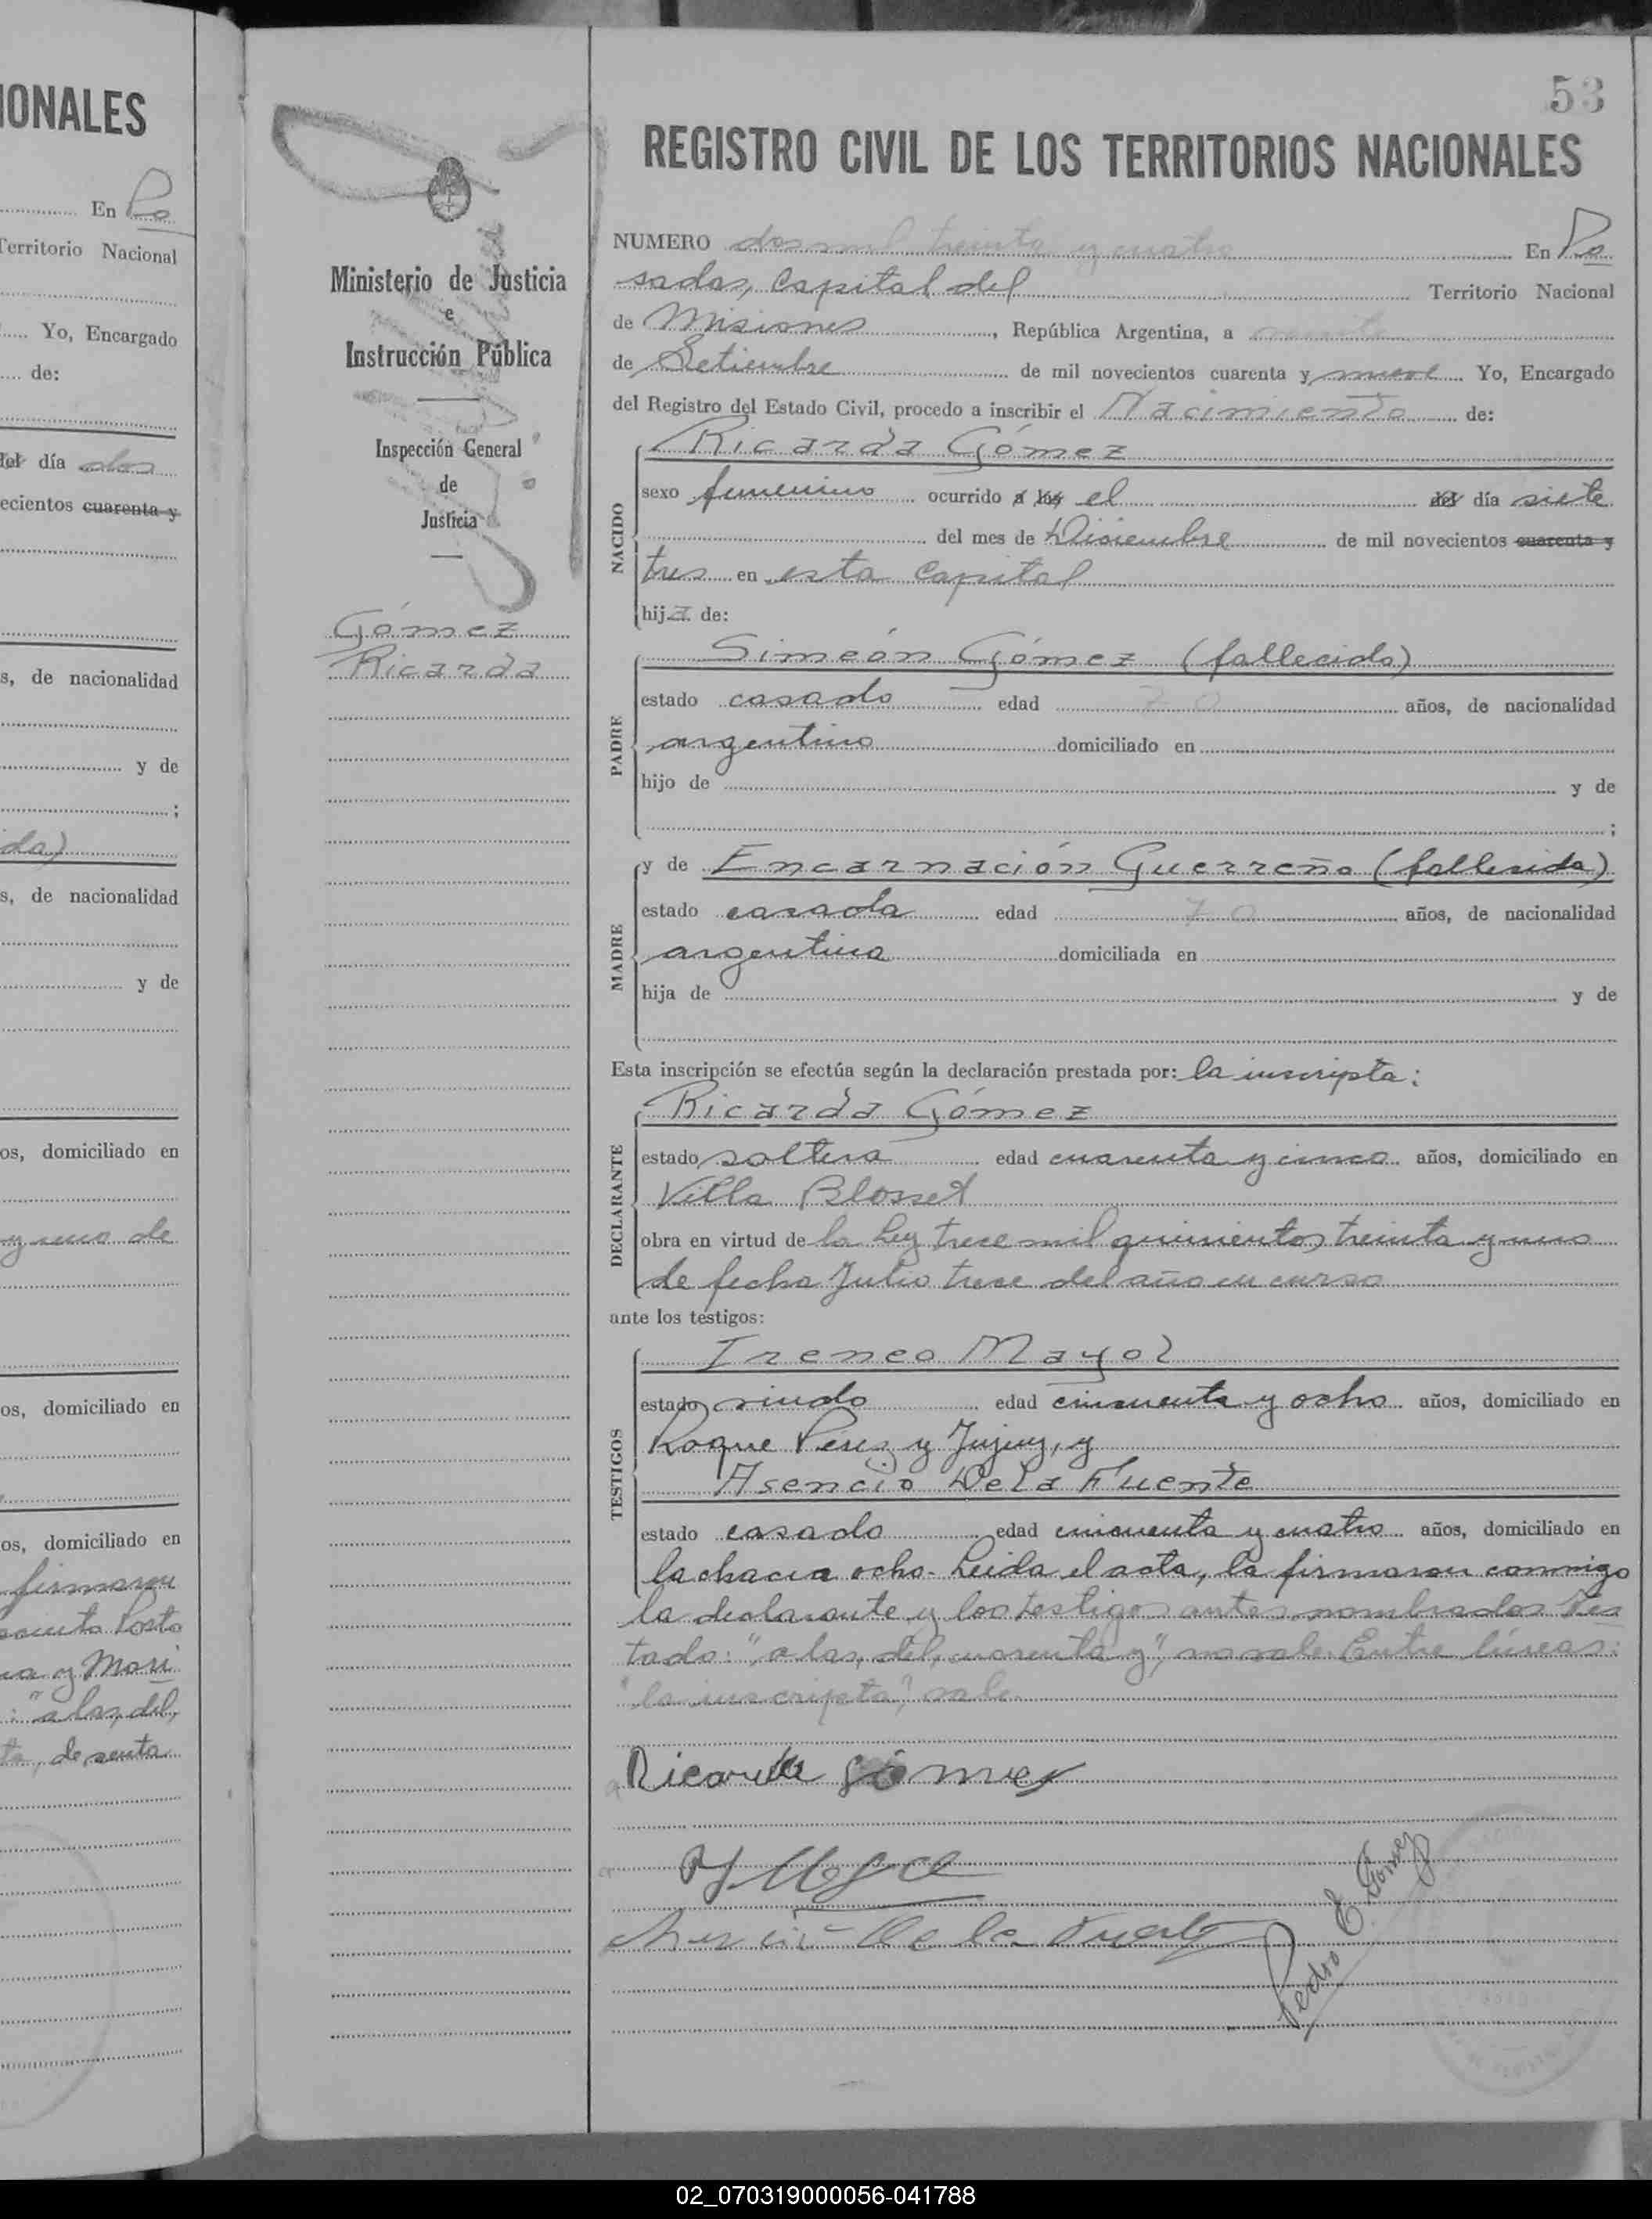 IONALES
En Po
Territorio Nacional
Yo, Encargado
de:
del día dos
ecientos cuarenta y
s, de nacionalidad
y de
;
da)
s, de nacionalidad
y de
os, domiciliado en
y uno de
os, domiciliado en
os, domiciliado en
firmaron
Posto
na y Mari
: "a las, del,
Ministerio de Justicia
e
Instrucción Pública
Inspección General
de
Justicia
Gómez
Ricarda
53
REGISTRO CIVIL DE LOS TERRITORIOS NACIONALES
NUMERO dos mil treinta y cuatro En Po
sadas, Capital del Territorio Nacional
de Misiones, República Argentina, a
de Setiembre de mil novecientos cuarenta y nueve Yo, Encargado
del Registro del Estado Civil, procedo a inscribir el Nacimiento de:
NACIDO
Ricarda Gómez
sexo femenino ocurrido a las el del día siete
del mes de Diciembre de mil novecientos cuarenta y
tres en esta Capital
hija de:
PADRE
Simeón Gómez (fallecido)
estado casado edad 70 años, de nacionalidad
argentino domiciliado en
hijo de y de
;
MADRE
y de Encarnación Guerreño (fallecida)
estado casada edad 70 años, de nacionalidad
argentina domiciliada en
hija de y de
Esta inscripción se efectúa según la declaración prestada por: la inscripta:
DECLARANTE
Ricarda Gómez
estado soltera edad cuarenta y cinco años, domiciliado en
Villa Blosset
obra en virtud de la Ley trece mil quinientos treinta y uno
de fecha Julio trece del año en curso
ante los testigos:
TESTIGOS
Ireneo Mayol
estado viudo edad cincuenta y ocho años, domiciliado en
Roque Pérez y Jujuy, y
Asencio De la Fuente
estado casado edad cincuenta y cuatro años, domiciliado en
la chacra ocho. Leida el acta, la firmaron conmigo
la declarante y los testigos antes nombrados Tes
tado: "a las, del, cuarenta y", no vale. Entre líneas:
"la inscripta", vale.
Ricarda Gómez
De la Fuente
Pedro E. Gomez
02_070319000056-041788